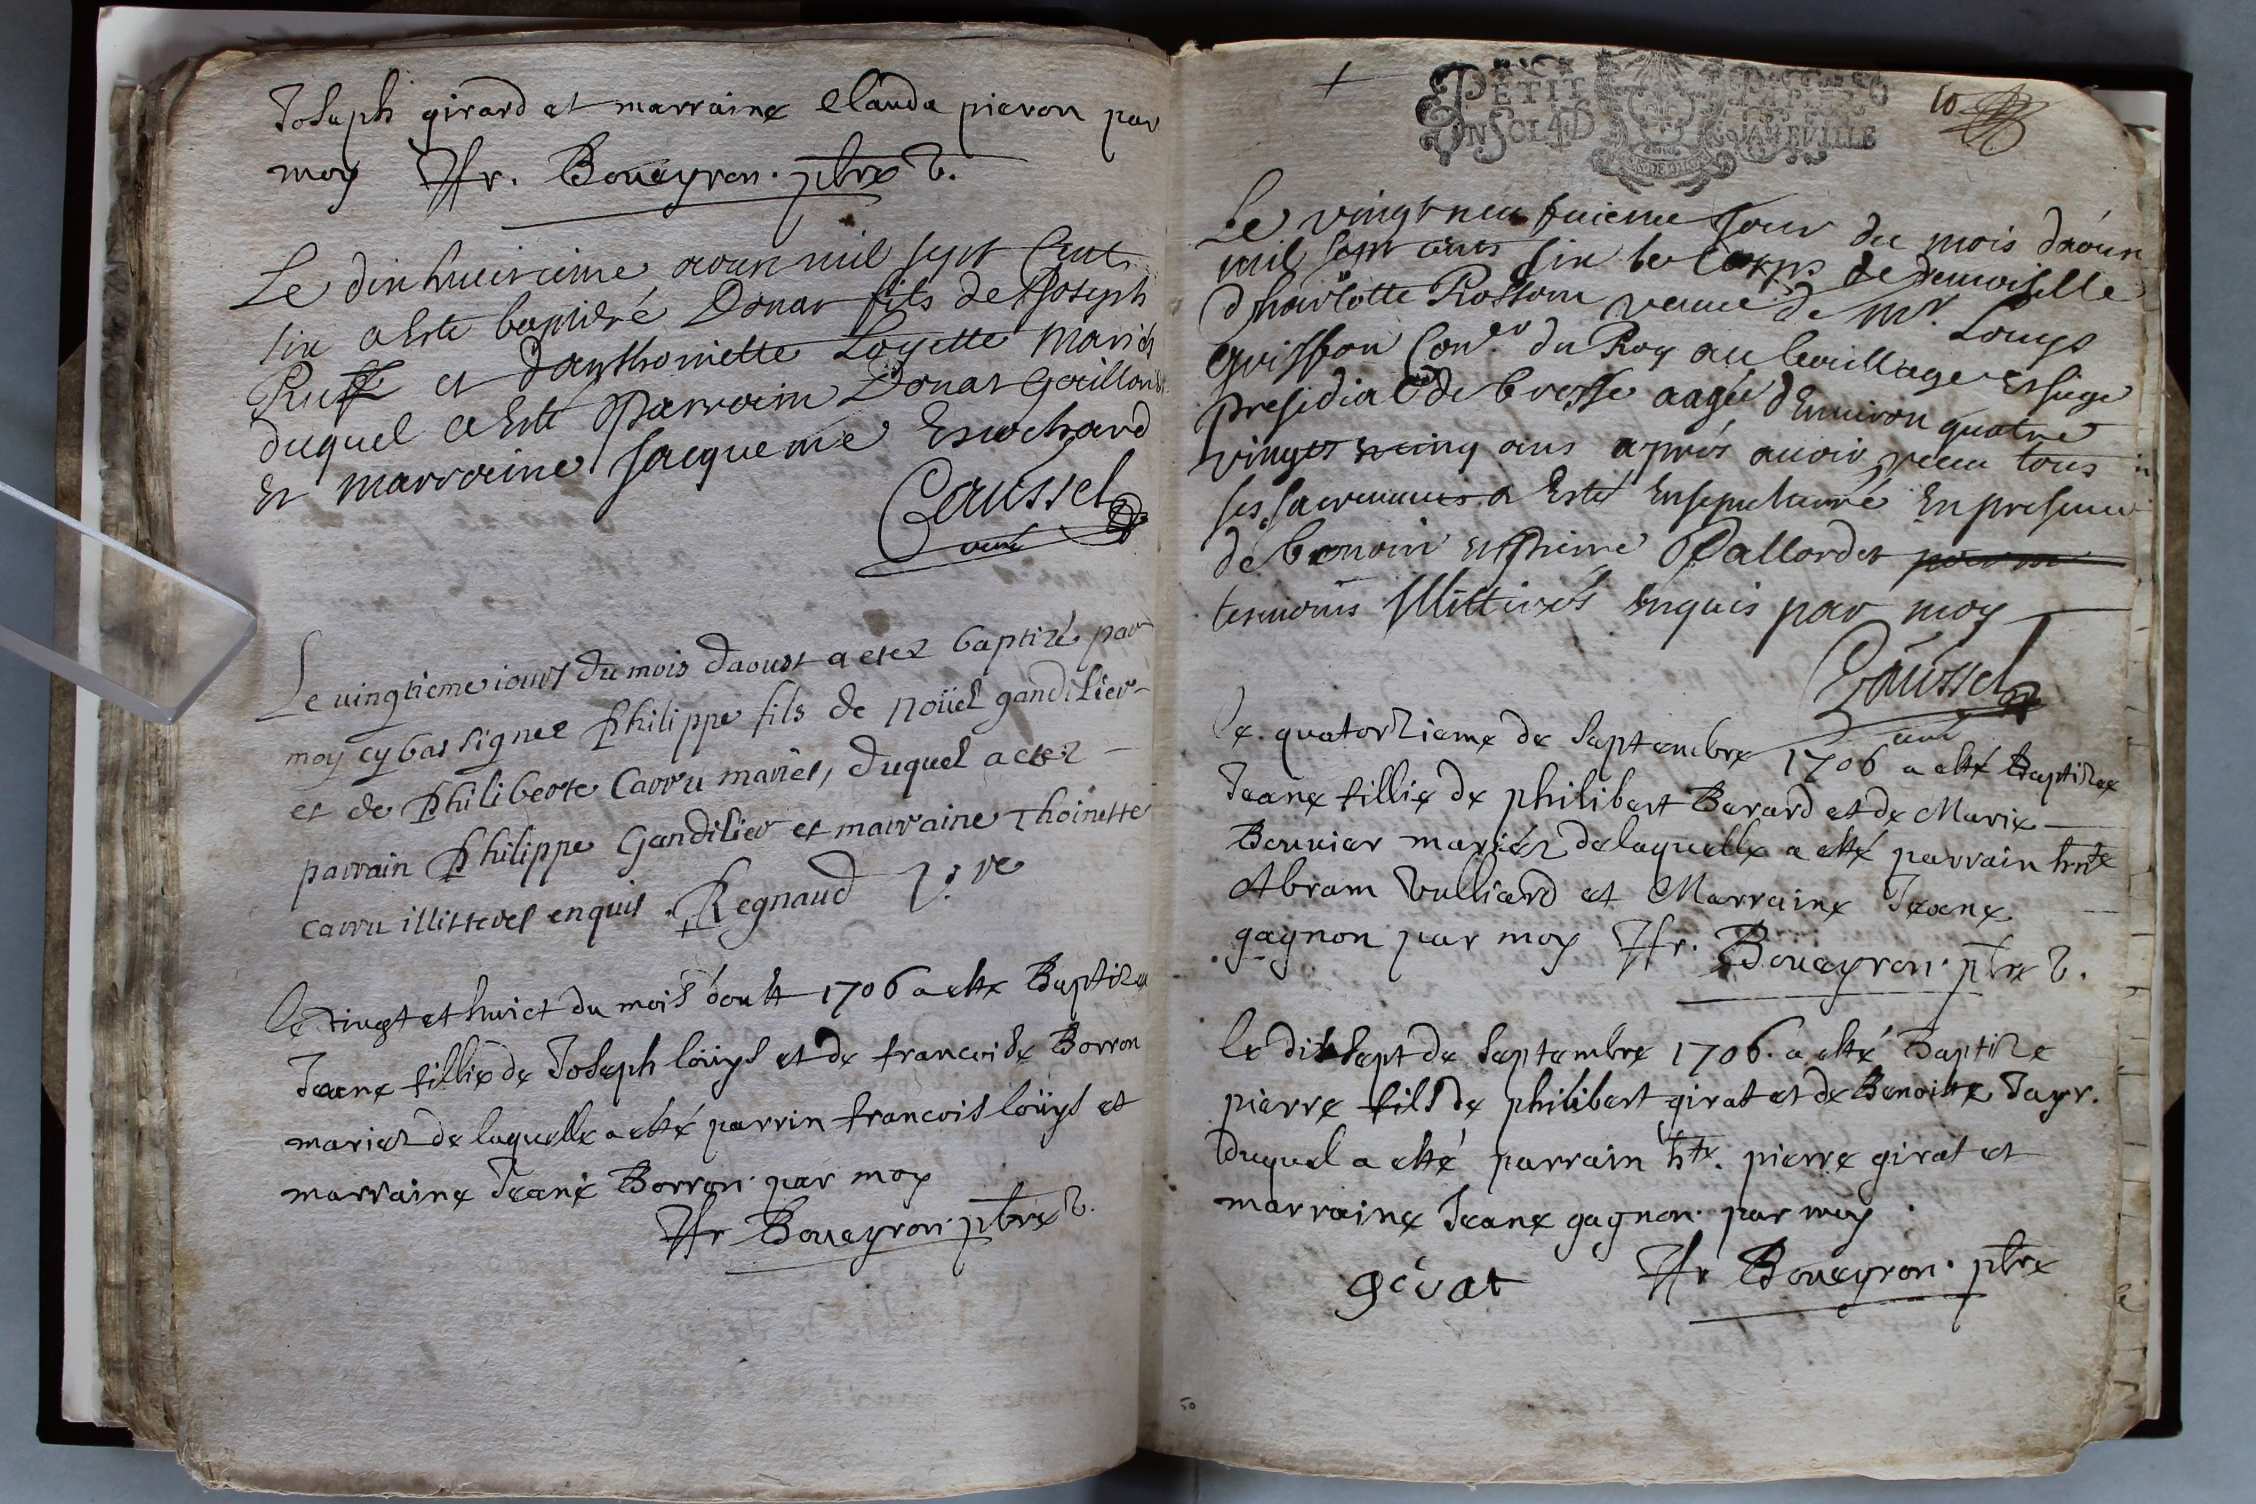 Joseph girard et marraine Clauda pieron par
moy Fr. Boueyron. pbre v.
Le dixhuictieme aoust mil sept Cents
six a Esté baptisé Donat fils de Joseph
Ruffe et d'anthoinette Loyette Mariés
duquel a Esté Parrain Donat Gaillon
Et marraine Jacqueme Enochard
Caussel
curé
Le vingtieme iours du mois daoust a etez baptizé par
moy cy bas signez Philippe fils de noüel gandilier
et de Philiberte Carru mariés, duquel a etez
parrain Philippe Gandilier et marraine Thoinette
carru illitteres enquis. Regnaud v:re
le vingt et huict du mois d'oust 1706 a este Baptizée
Jeane fillie de Joseph loüys et de francoise Borron
mariez de laquelle a esté parrin francois loüys et
marraine Jeane Borron. par moy
Fr Boueyron. pbre v.
PETIT PAPIER
UN SOL 4 D LA FEUILLE
10
Le vingt neufuieme Jour du mois d'aoust
mil sept cents six le Corps de demoiselle
Charlotte Rossom veuue de Mr. Louys
Grisson Con.er du Roy au bailliage et siege
presidial de bresse aagée d'Enuiron quatre
vingts cinq ans aprés auoir receu tous
ses sacrements a Esté Ensepulturé En presence
de benoin et Pierre Pallordet
temoins illitterés enquis par moy
Caussel
curé
le quatorzieme de septembre 1706 a esté Baptizee
Jeane fillie de philibert Berard et de Marie
Bouuier mariéz de laquelle a esté parrain hnte
Abram Vulliard et Marraine Jeane
gagnon par moy Fr. Boueyron. pbre v.
le dixsept de septembre 1706. a esté Baptize
pierre fils de philibert girat et de Benoiste Jayr.
duquel a esté parrain hte. pierre girat et
marraine Jeane gagnon. par moy.
girat Fr Boueyron. pbre
50